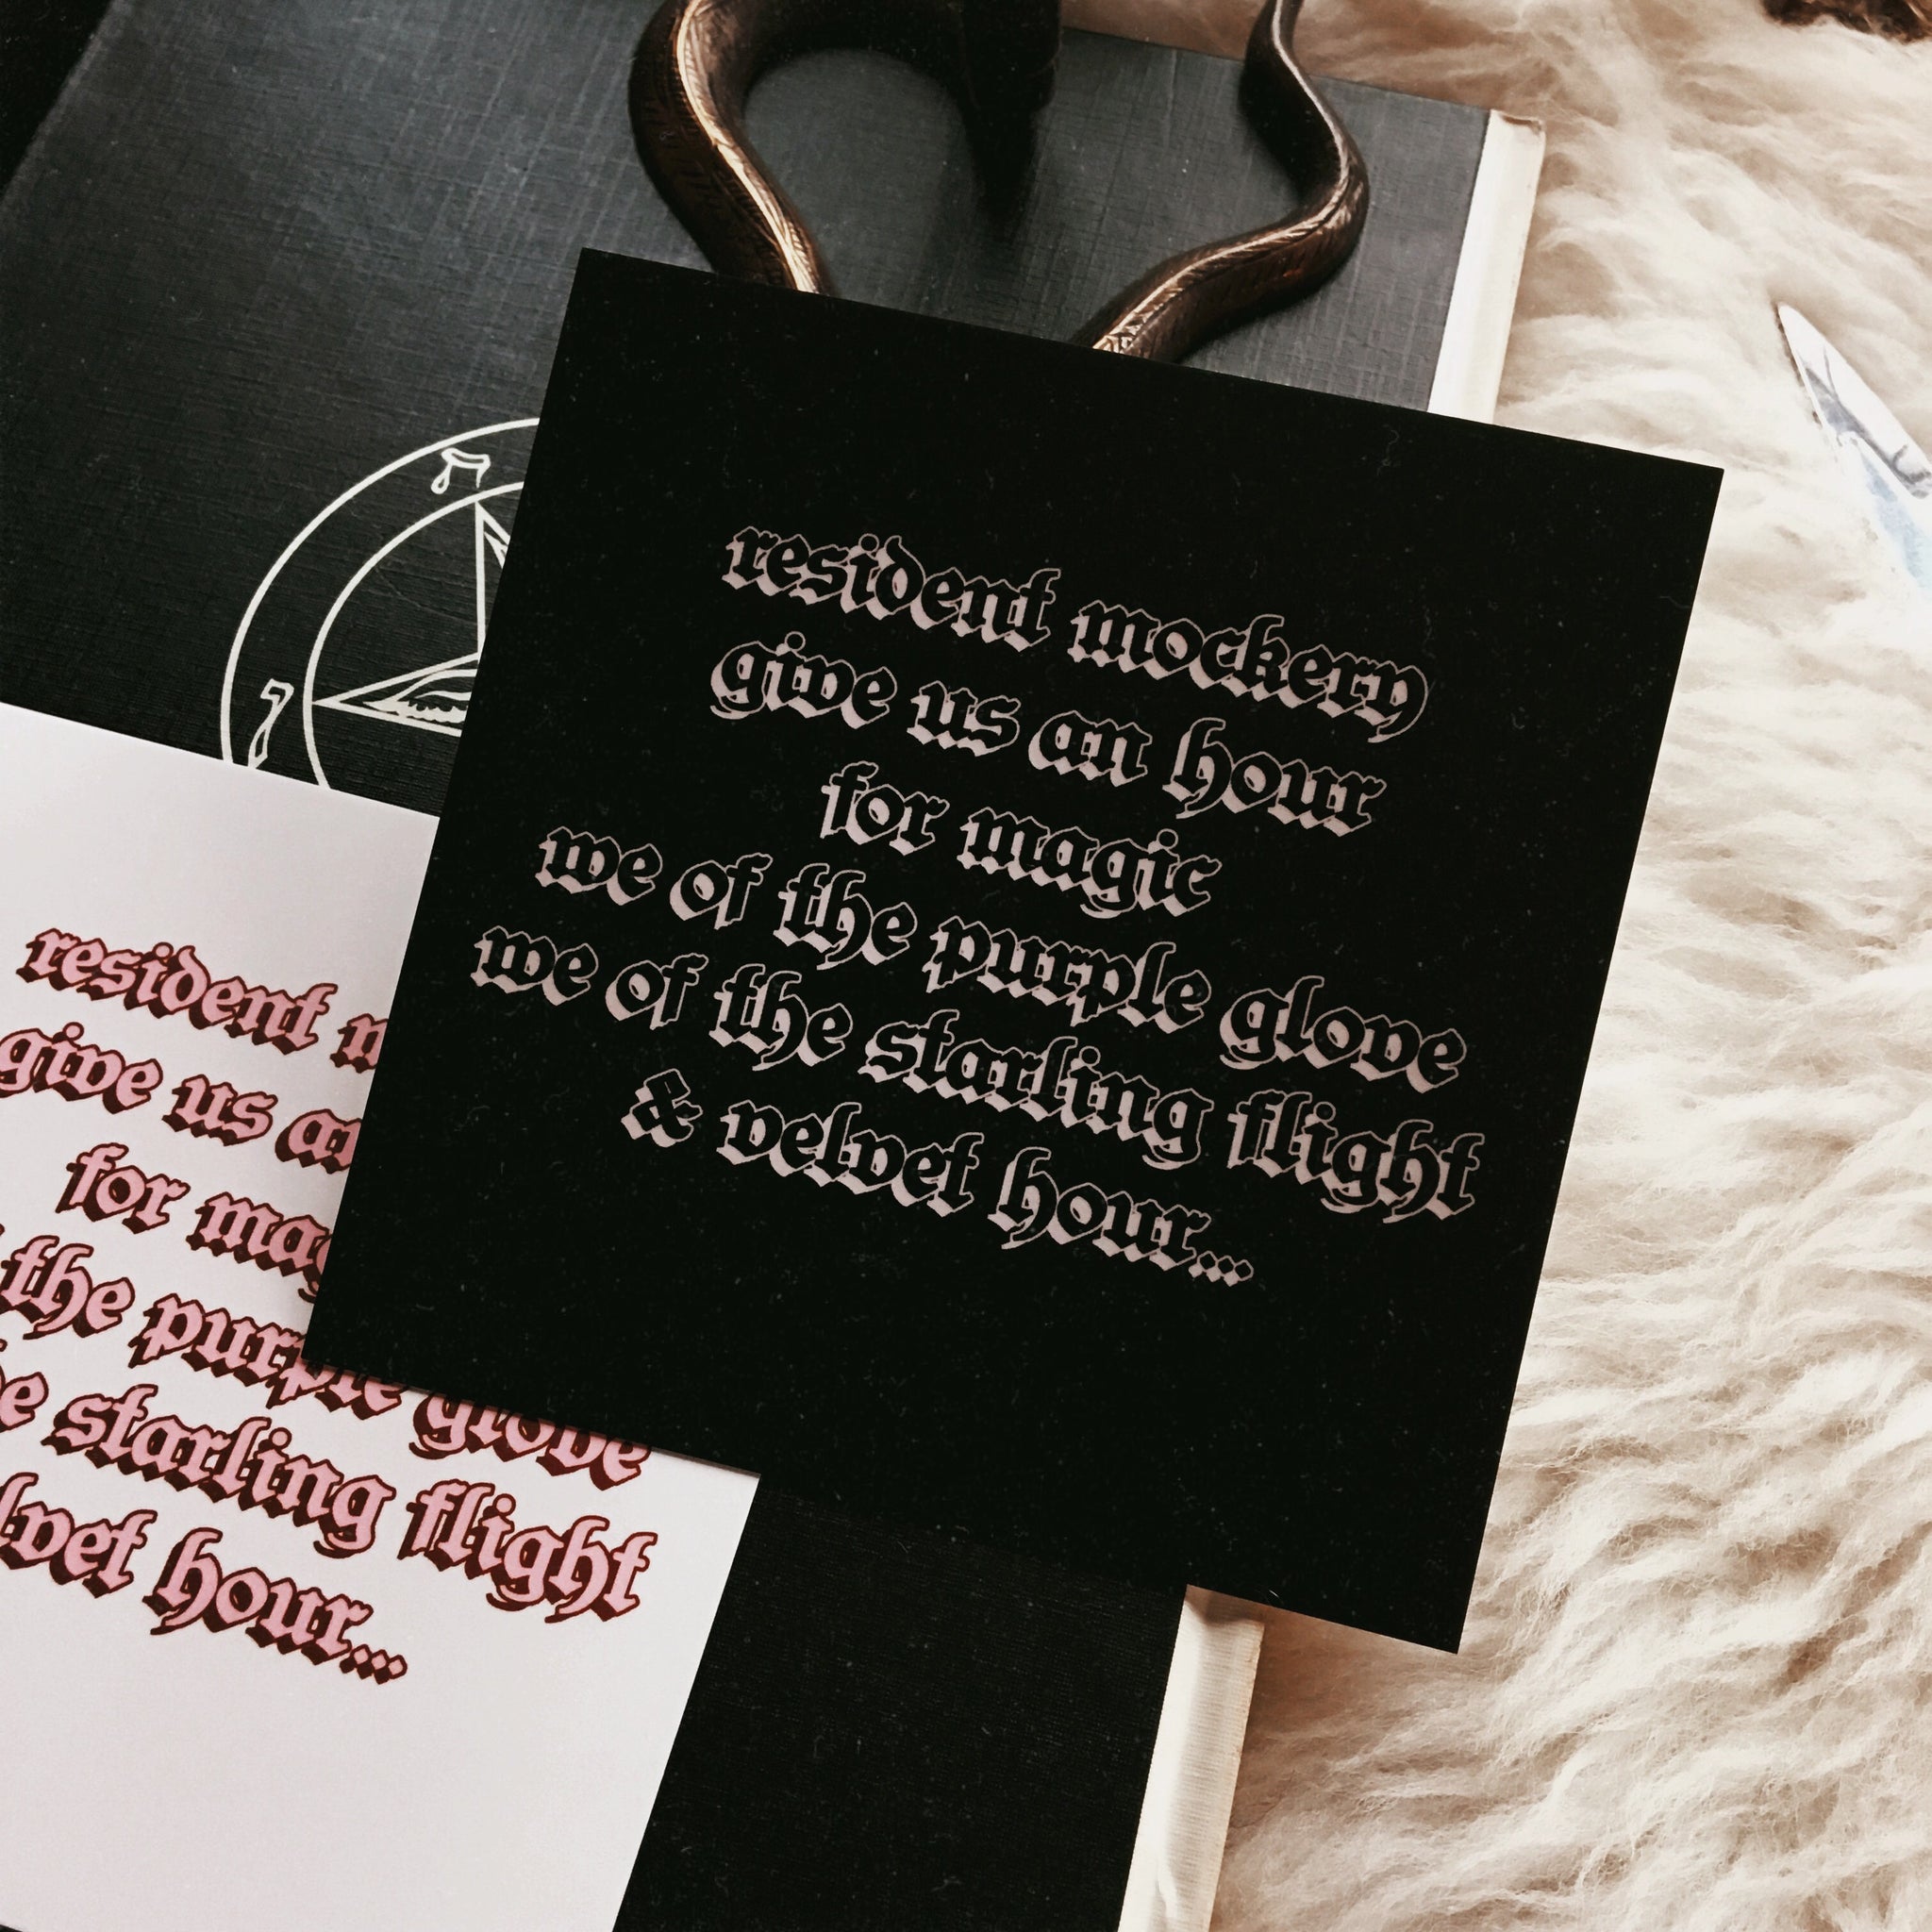 resident mockery
give us an hour
for magic
we of the purple glove
we of the starling flight
& velvet hour...
resident
give us
for
the purple glove
starling flight
hour...